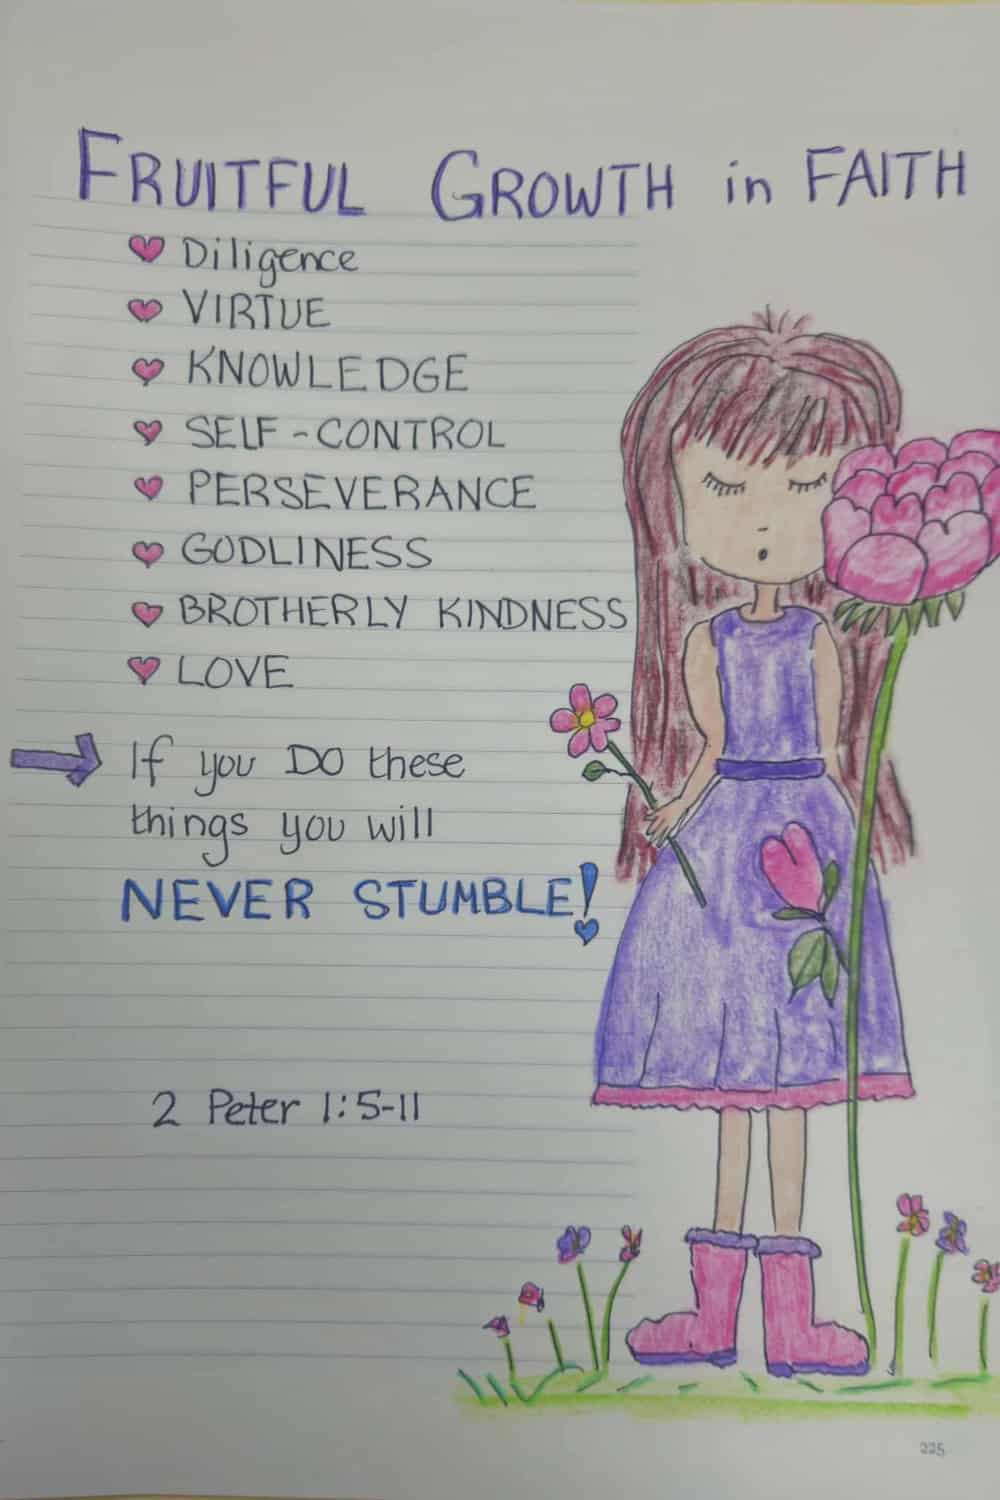 FRUITFUL GROWTH in FAITH
Diligence
VIRTUE
KNOWLEDGE
SELF-CONTROL
PERSEVERANCE
GODLINESS
BROTHERLY KINDNESS
LOVE
If you DO these
things you will
NEVER STUMBLE!
2 Peter 1:5-11
225